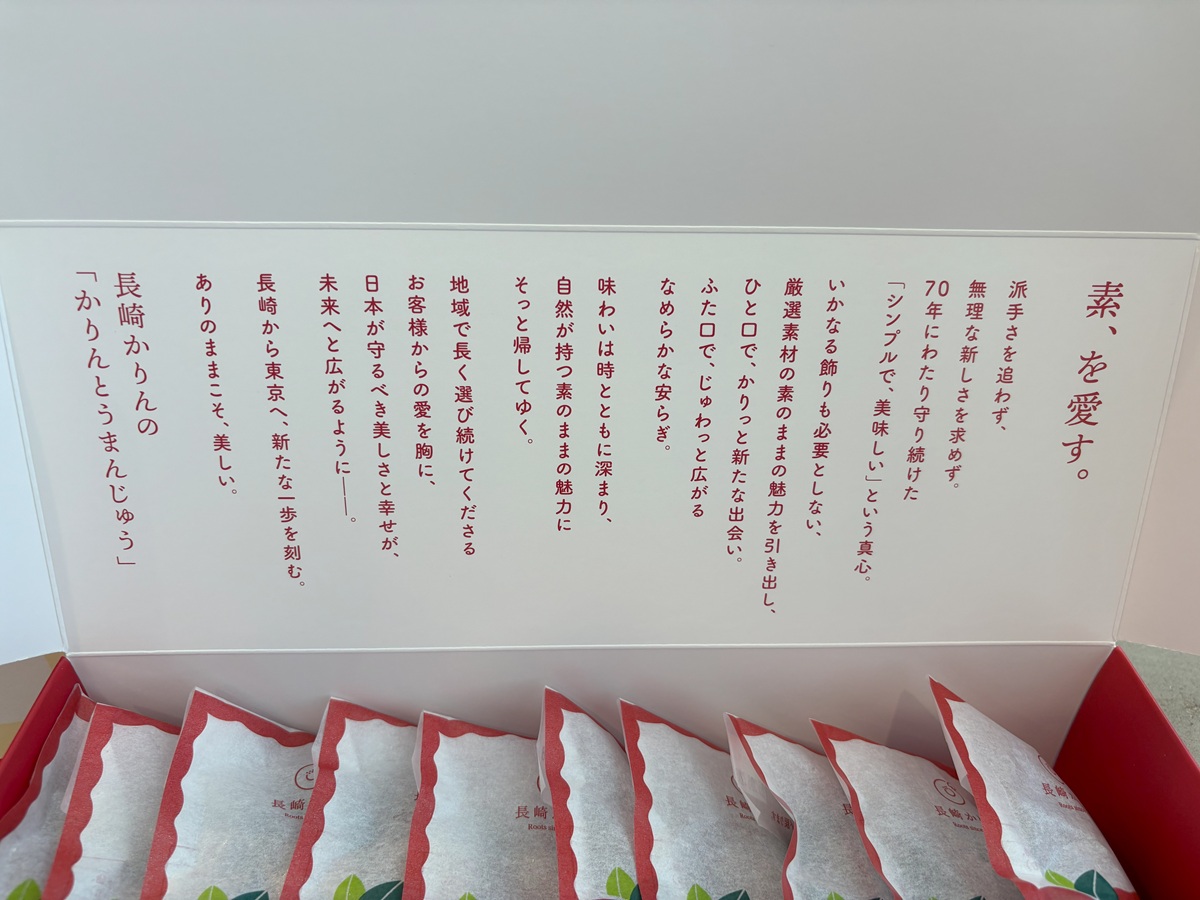 素、を愛す。
派手さを追わず、
無理な新しさを求めず。
70年にわたり守り続けた
「シンプルで、美味しい」という真心。
いかなる飾りも必要としない、
厳選素材の素のままの魅力を引き出し、
ひと口で、かりっと新たな出会い。
ふた口で、じゅわっと広がる
なめらかな安らぎ。
味わいは時とともに深まり、
自然が持つ素のままの魅力に
そっと帰してゆく。
地域で長く選び続けてくださる
お客様からの愛を胸に、
日本が守るべき美しさと幸せが、
未来へと広がるように──。
長崎から東京へ、新たな一歩を刻む。
ありのままこそ、美しい。
長崎かりんの
「かりんとうまんじゅう」
長崎
Roots
長崎
Roots
長
長崎か
Roots since
長崎
Roots